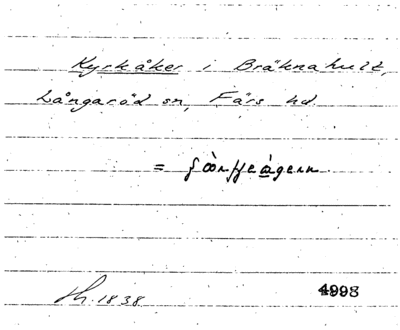 Kyrkåker i Bräknahult,
Långaröd sn, Färs hd
=
Th. 1838
4998